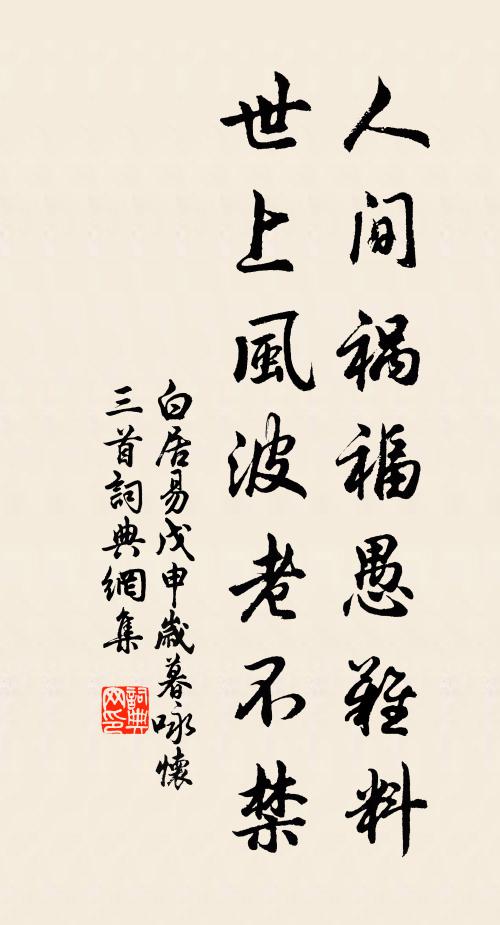 人间祸福愚難料
世上風波老不禁
白居易戊申歲暮咏懷
三首詞典網集
詞典網印